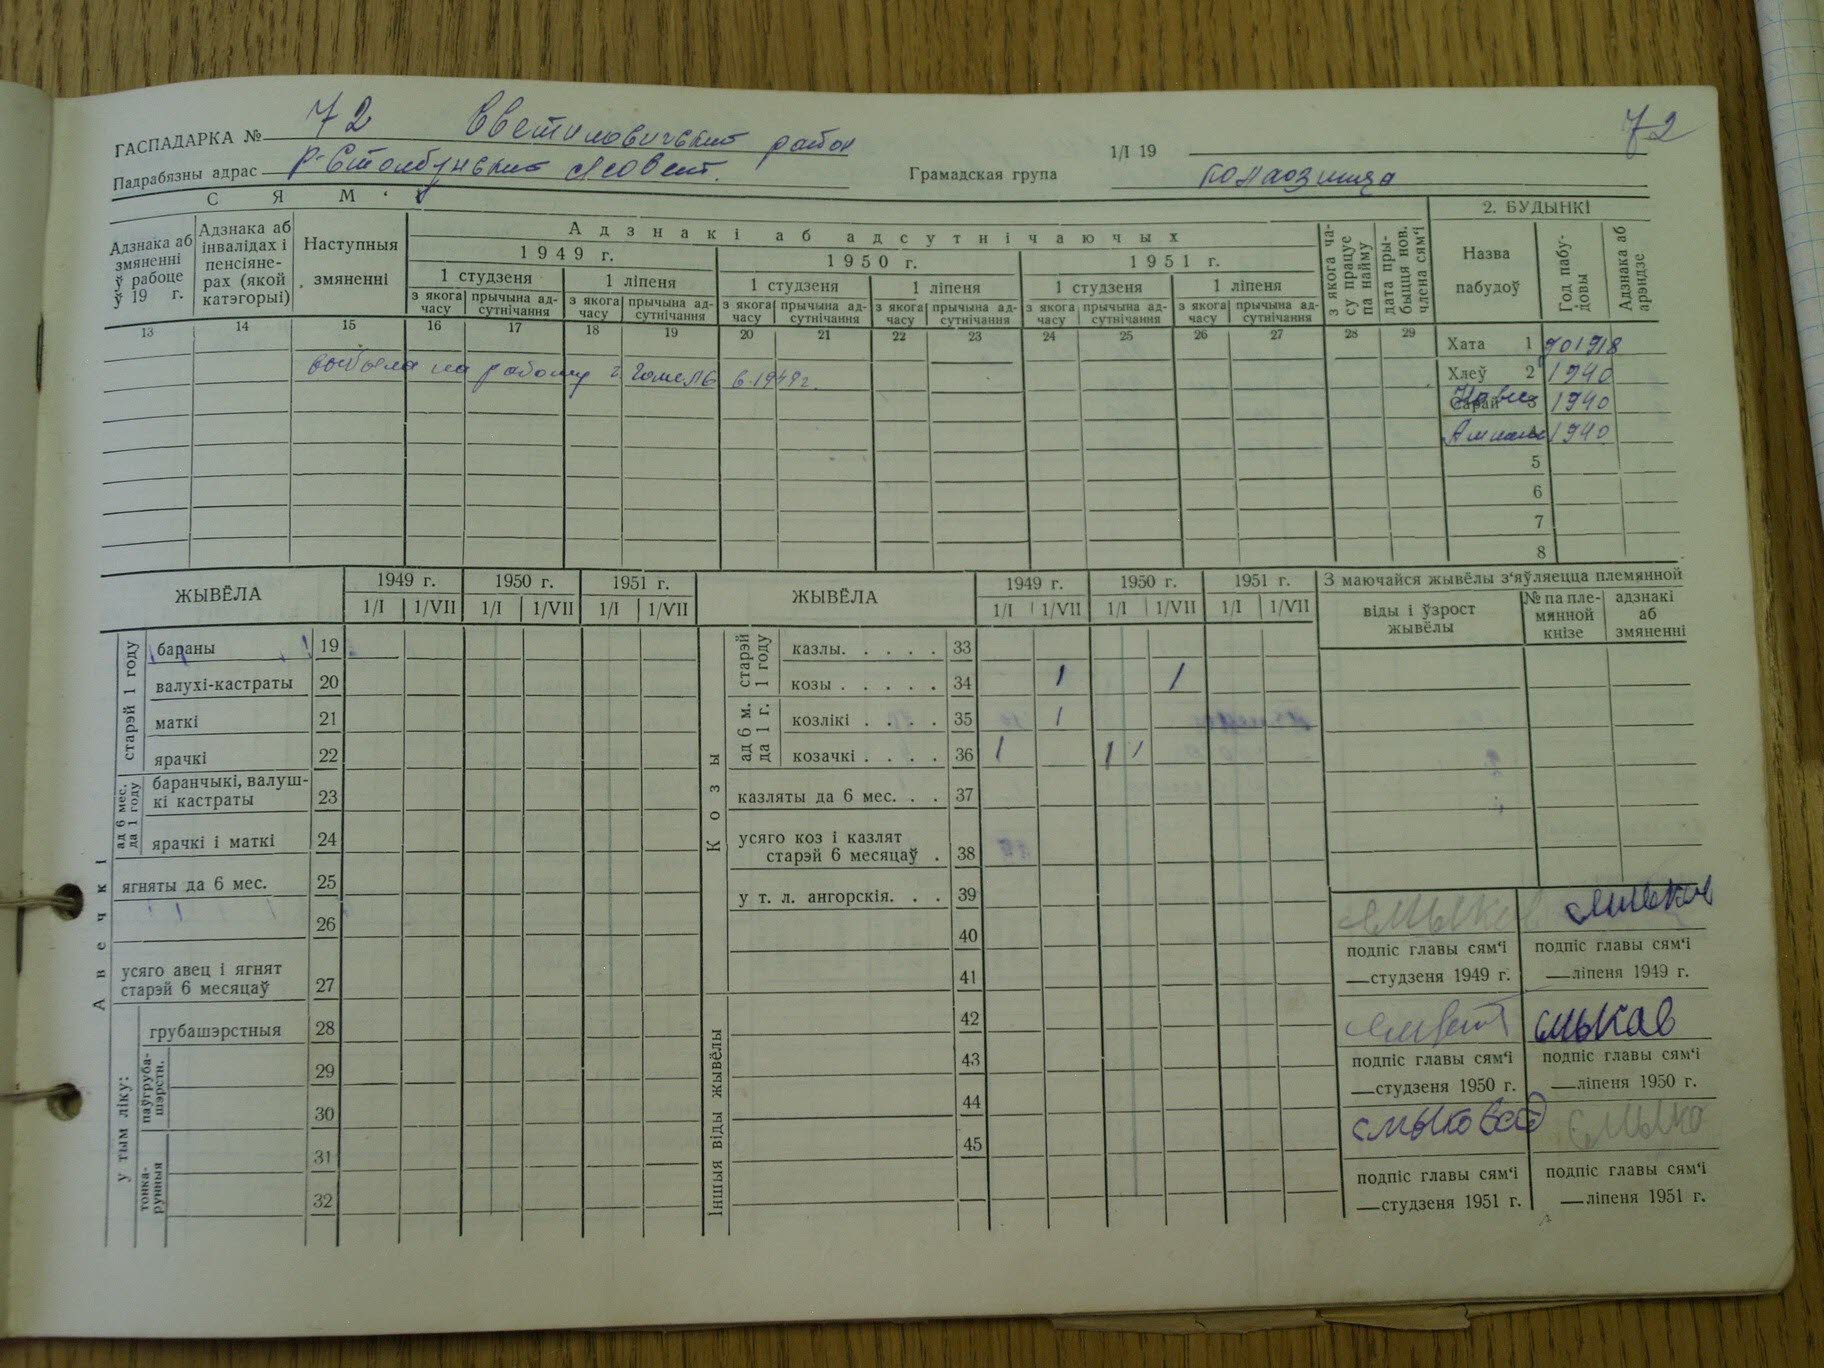 72
ГАСПАДАРКА № 72 Светиловический район
1/I 19
Падрабязны адрас Р-Столбунский с/совет.
Грамадская група колхозница
С Я М ' Я
Адзнака аб змяненні ў рабоце ў 19 г.
Адзнака аб інвалідах і пенсіянерах (якой катэгорыі)
Наступныя змяненні
Адзнакі аб адсутнічаючых
1949 г. 1950 г. 1951 г.
1 студзеня 1 ліпеня 1 студзеня 1 ліпеня 1 студзеня 1 ліпеня
з якога часу прычына адсутнічання з якога часу прычына адсутнічання з якога часу прычына адсутнічання з якога часу прычына адсутнічання з якога часу прычына адсутнічання з якога часу прычына адсутнічання
з якога часу працуе па найму
дата прыбыцця нов. члена сям'і
2. БУДЫНКІ
Назва пабудоў
Год пабудовы
Адзнака аб арэндзе
13 14 15 16 17 18 19 20 21 22 23 24 25 26 27 28 29
выбыла на работу г. Гомель 6.1949г.
Хата 1 до 1918
Хлеў 2 1940
Сарай 3 1940
4 1940
5
6
7
8
ЖЫВЁЛА
1949 г. 1950 г. 1951 г.
1/I 1/VII 1/I 1/VII 1/I 1/VII
Авечкі
старэй 1 году
бараны 19
валухі-кастраты 20
маткі 21
ярачкі 22
ад 6 мес. да 1 году
баранчыкі, валушкі кастраты 23
ярачкі і маткі 24
ягняты да 6 мес. 25
26
усяго авец і ягнят старэй 6 месяцаў 27
у тым ліку:
грубашэрстныя 28
паўгрубашэрстн.
29
30
тонкарунныя
31
32
ЖЫВЁЛА
1949 г. 1950 г. 1951 г.
1/I 1/VII 1/I 1/VII 1/I 1/VII
Козы
старэй 1 году
казлы. . . . . 33
козы . . . . . 34 1 1
ад 6 м. да 1 г.
козлікі . . . . 35 1
козачкі . . . . 36 1 1 1
казляты да 6 мес. . . 37
усяго коз і казлят старэй 6 месяцаў . 38
у т. л. ангорскія. . . 39
40
41
Іншыя віды жывёлы
42
43
44
45
З маючайся жывёлы з'яўляецца племянной
віды і ўзрост жывёлы
№ па племянной кнізе
адзнакі аб змяненні
Смыков Смыков
подпіс главы сям'і подпіс главы сям'і
—студзеня 1949 г. —ліпеня 1949 г.
Смыкав
подпіс главы сям'і подпіс главы сям'і
—студзеня 1950 г. —ліпеня 1950 г.
подпіс главы сям'і подпіс главы сям'і
—студзеня 1951 г. —ліпеня 1951 г.